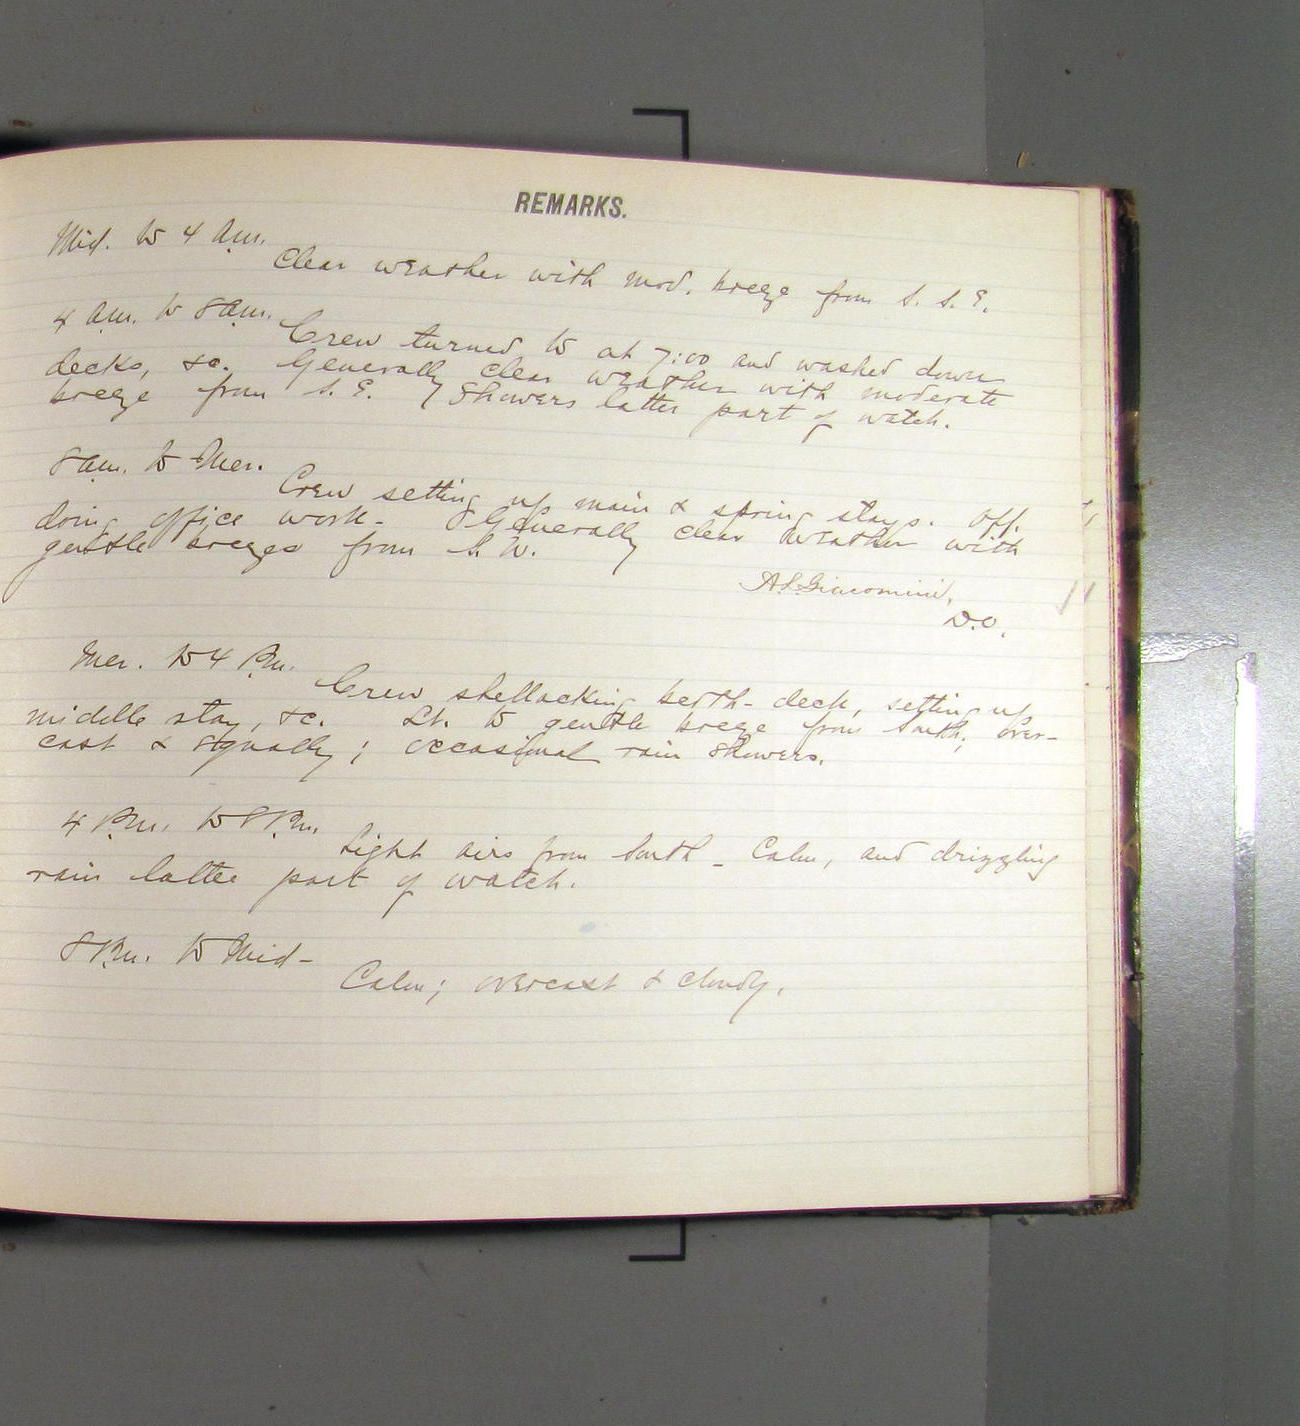 REMARKS.
Mid. to 4 a.m.
Clear weather with mod. breeze from S. S. E.
4 a.m. to 8 a.m.
Crew turned to at 7:00 and washed down
decks, &c. Generally clear weather with moderate
breeze from S. E. Showers latter part of watch.
8 a.m. to Mer.
Crew setting up main & spring stays. Off.
doing office work. Generally clear weather with
gentle breeze from S. W.
A. S. Giacomini,
D.O.
Mer. to 4 P.m.
Crew shellacking berth-deck, setting up
middle stay, &c. Lt. to gentle breeze from South; Over-
cast & squally; occasional rain showers.
4 P.m. to 8 P.m.
Light airs from South - Calm, and drizzling
rain latter part of watch.
8 P.m. to Mid-
Calm; overcast & cloudy.